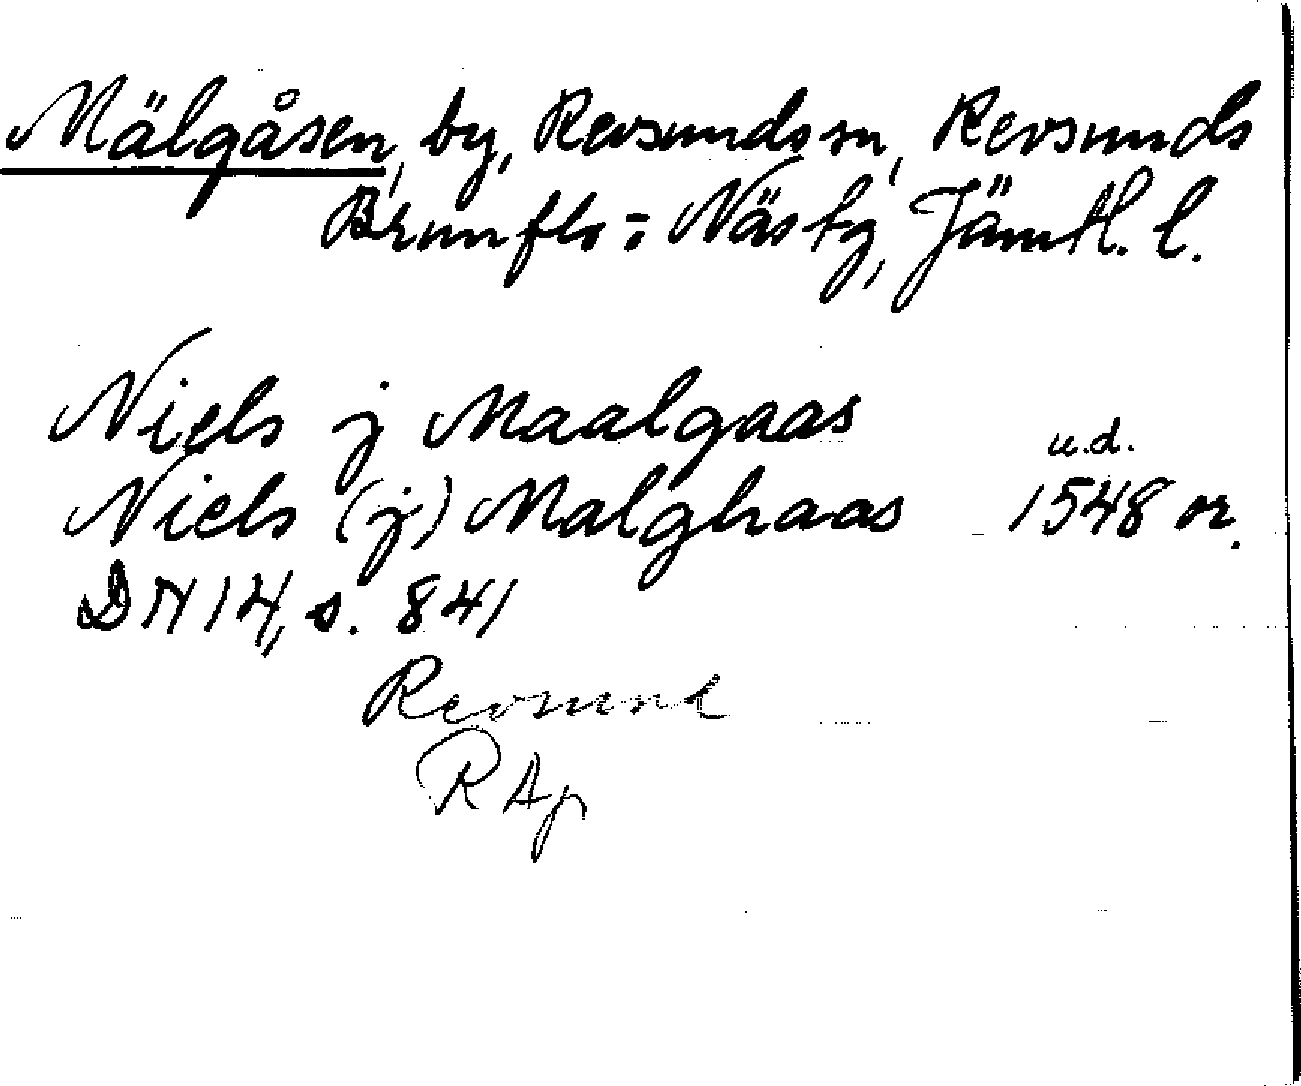 Mälgåsen, by, Revsunds sn, Revsunds
Brunflo: Näs tg, Jämtl. l.
Niels j Maalgaas
u.d.
Niels (j) Malghaas 1548 or.
DN 14, s. 841
Revsund
RAp